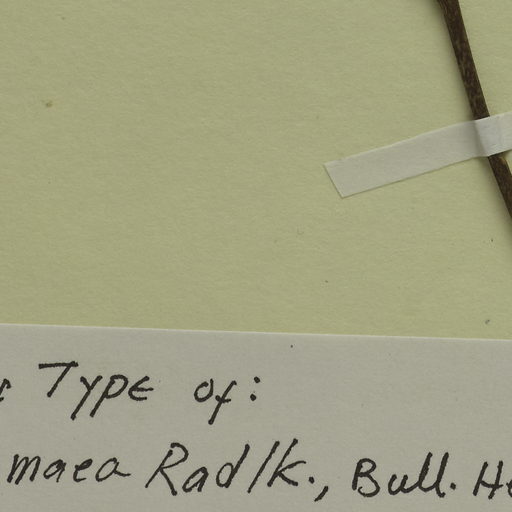 Type of:
maea Radlk., Bull. He